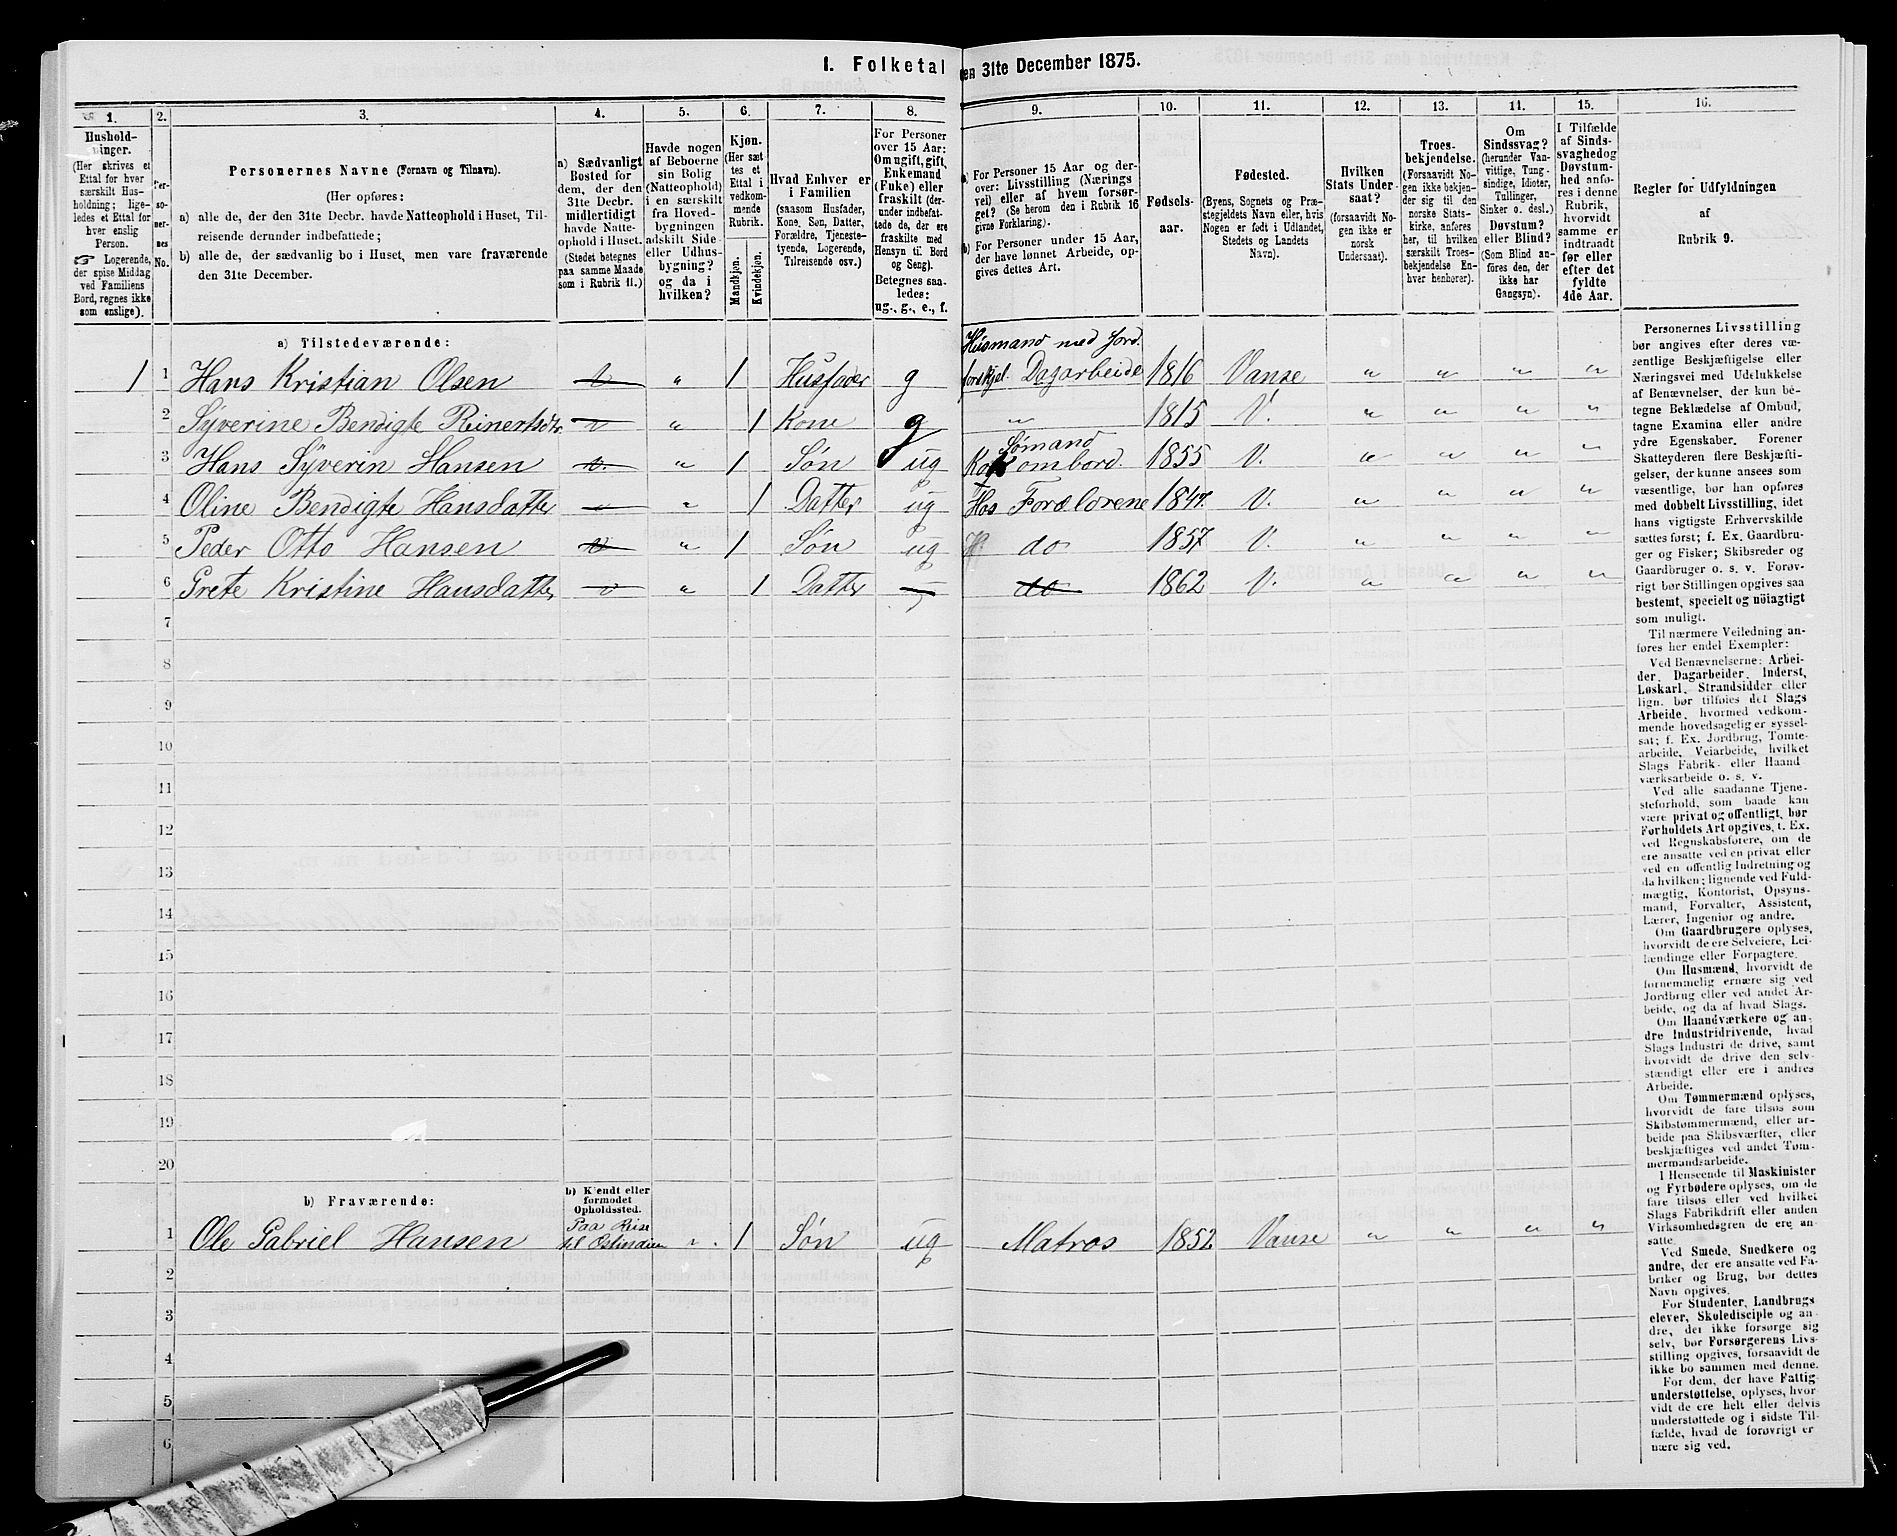 1. Folketal den 31te December 1875.
1. 2. 3. 4. 5. 6. 7. 8. 9. 10. 11. 12. 13. 14. 15. 16.
Hushold-
ninger.
(Her skrives et
Ettal for hver
særskilt Hus-
holdning; lige-
ledes et Ettal for
hver enslig
Person.
☞ Logerende,
der spise Middag
ved Familiens
Bord, regnes ikke
som enslige).
Per-
so-
ner-
nes
No.
Personernes Navne (Fornavn og Tilnavn).
(Her opføres:
a) alle de, der den 31te Decbr. havde Natteophold i Huset, Til-
reisende derunder indbefattede;
b) alle de, der sædvanlig bo i Huset, men vare fraværende
den 31te December.
a) Sædvanligt
Bosted for
dem, der den
31te Decbr.
midlertidigt
havde Natte-
ophold i Huset.
(Stedet betegnes
paa samme Maade
som i Rubrik 11.)
Havde nogen
af Beboerne
sin Bolig
(Natteophold)
i en særskilt
fra Hoved-
bygningen
adskilt Side-
eller Udhus-
bygning?
og da i
hvilken?
Kjøn.
(Her sæt-
tes et
Ettal i
vedkom-
mende
Rubrik.
Mandkjøn.
Kvindekjøn.
Hvad Enhver er
i Familien
(saasom Husfader,
Kone, Søn, Datter,
Forældre, Tjeneste-
tyende, Logerende,
Tilreisende osv.)
For Personer
over 15 Aar:
Om ugift, gift,
Enkemand
(Enke) eller
fraskilt (der-
under indbefat-
tede de, der ere
fraskilte med
Hensyn til Bord
og Seng).
Betegnes saa-
ledes:
ug., g., e., f.
a) For Personer 15 Aar og der-
over: Livsstilling (Nærings-
vei) eller af hvem forsør-
get? (Se herom den i Rubrik 16
givne Forklaring).
b) For Personer under 15 Aar,
der have lønnet Arbeide, op-
gives dettes Art.
Fødsels-
aar.
Fødested.
(Byens, Sognets og Præ-
stegjeldets Navn eller, hvis
Nogen er født i Udlandet,
Stedets og Landets
Navn).
Hvilken
Stats Under-
saat?
(forsaavidt No-
gen ikke er
norsk
Undersaat).
Troes-
bekjendelse.
(Forsaavidt No-
gen ikke bekjen-
der sig til den
norske Stats-
kirke, anføres
her, til hvilken
særskilt Troes-
bekjendelse En-
hver henhører).
Om
Sindssvag?
(herunder Van-
vittige, Tung-
sindige, Idioter,
Tullinger,
Sinker o. desl.)
Døvstum?
eller Blind?
(Som Blind an-
føres den, der
ikke har
Gangsyn).
I Tilfælde
af Sinds-
svaghed og
Døvstum-
hed anfø-
res i denne
Rubrik,
hvorvidt
samme er
indtraadt
før eller
efter det
fyldte
4de Aar.
Regler for Udfyldningen
af
Rubrik 9.
a) Tilstedeværende:
Husmand med Jord
1 1 Hans Kristian Olsen v " 1 Husfader g forskjel. Dagarbeide 1816 Vanse " " " "
2 Syverine Bendigte Reinertsdtr. v " 1 Kone g " 1815 V. " " " "
Sømand
3 Hans Syverin Hansen v. " 1 Søn ug Kok ombord. 1855 V. " " " "
4 Oline Bendigte Hansdatter v " 1 Datter ug Hos Forældrene 1847. V. " " " "
5 Peder Otto Hansen v " 1 Søn ug H. do 1857 V. " " " "
6 Grete Kristine Hansdatter v " 1 Datter do 1862 V. " " " "
7
8
9
10
11
12
13
14
15
16
17
18
19
20
b) Fraværende:
b) Kjendt eller
formodet
Opholdssted.
Paa Reise
1 Ole Gabriel Hansen til Ostindien " 1 Søn ug Matros 1852 Vanse " " " "
2
3
4
5
6
Personernes Livsstilling
bør angives efter deres væ-
sentlige Beskjæftigelse eller
Næringsvei med Udelukkelse
af Benævnelser, der kun be-
tegne Beklædelse af Ombud,
tagne Examina eller andre
ydre Egenskaber. Forener
Skatteyderen flere Beskjæfti-
gelser, der kunne ansees som
væsentlige, bør han opføres
med dobbelt Livsstilling, idet
hans vigtigste Erhvervskilde
sættes først; f. Ex. Gaardbru-
ger og Fisker; Skibsreder og
Gaardbruger o. s. v. Forøv-
rigt bør Stillingen opgives saa
bestemt, specielt og nøiagtigt
som muligt.
Til nærmere Veiledning an-
føres her endel Exempler:
Ved Benævnelserne: Arbei-
der, Dagarbeider, Inderst,
Løskarl, Strandsidder eller
lign. bør tilføies det Slags
Arbeide, hvormed vedkom-
mende hovedsagelig er syssel-
sat; f. Ex. Jordbrug, Tomte-
arbeide, Veiarbeide, hvilket
Slags Fabrik- eller Haand-
værksarbeide o. s. v.
Ved alle saadanne Tjene-
steforhold, som baade kan
være privat og offentligt, bør
Forholdets Art opgives, t. Ex.
ved Regnskabsførere, om de
ere ansatte ved en privat eller
ved en offentlig Indretning og
da hvilken; lignende ved Fuld-
mægtig, Kontorist, Opsyns-
mand, Forvalter, Assistent,
Lærer, Ingeniør og andre.
Om Gaardbrugere oplyses,
hvorvidt de ere Selveiere, Lei-
lændinge eller Forpagtere.
Om Husmænd, hvorvidt de
fornemmelig ernære sig ved
Jordbrug eller ved andet Ar-
beide, og da af hvad Slags.
Om Haandværkere og an-
dre Industridrivende, hvad
Slags Industri de drive, samt
hvorvidt de drive den selv-
stændigt eller ere i andres
Arbeide.
Om Tømmermænd oplyses,
hvorvidt de fare tilsøs som
Skibstømmermænd, eller ar-
beide paa Skibsværfter, eller
beskjæftiges ved andet Tøm-
mermandsarbeide.
I Henseende til Maskinister
og Fyrbødere oplyses, om de
fare tilsøs eller ved hvilket
Slags Fabrikdrift eller anden
Virksomhedsgren de ere an-
satte.
Ved Smede, Snedkere og
andre, der ere ansatte ved Fa-
briker og Brug, bør dettes
Navn opgives.
For Studenter, Landbrugs-
elever, Skoledisciple og an-
dre, der ikke forsørge sig
selv, bør Forsørgerens Livs-
stilling opgives, forsaavidt de
ikke bo sammen med denne.
For dem, der have Fattig-
understøttelse, oplyses, hvor-
vidt de ere helt eller delvis
understøttede og i sidste Til-
fælde, hvad de forøvrigt er-
nære sig ved.